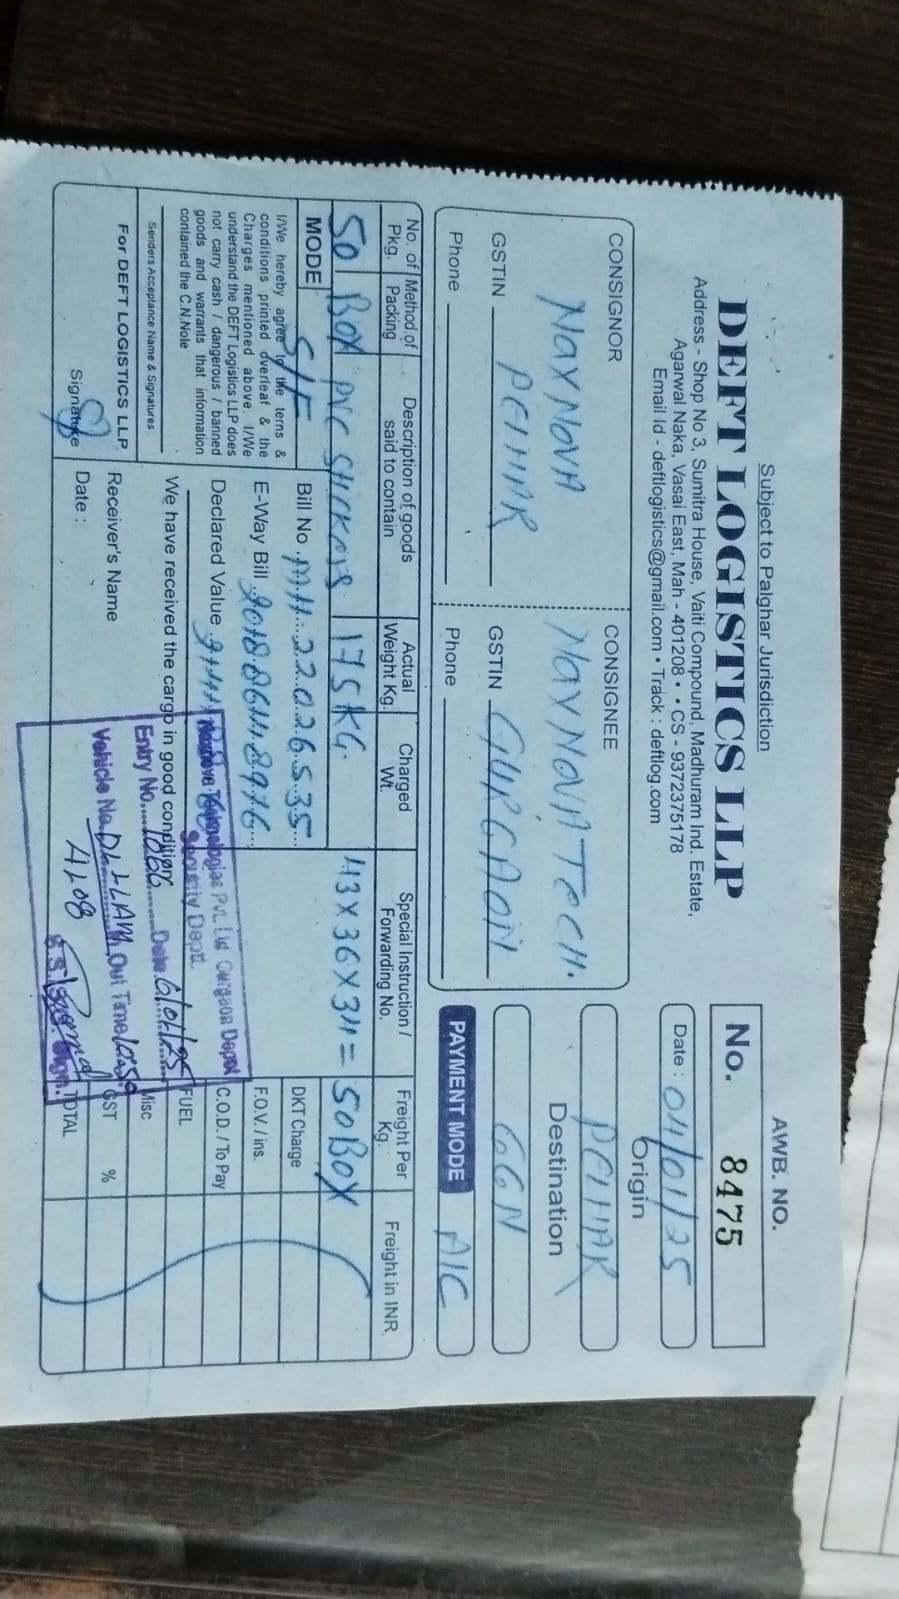 Subject to Palghar Jurisdiction
AWB. NO.
DEFT LOGISTICS LLP
No. 8475
Address.- Shop No 3, Sumitra House, Vaiti Compound, Madhuram Ind. Estate,
Agarwal Naka, Vasai East, Mah - 401208 • • CS - 9372375178
Email Id - deftlogistics@gmail.com • Track : deftlog.com
Date : 04/01/25
CONSIGNOR
NAXNOVA
PELHAR
GSTIN
Phone
CONSIGNEE
NAXNOVA TECH.
GSTIN GURGAON
Phone
Origin
PELHAR
Destination
GGN
PAYMENT MODE A/C
No. of Pkg.
Method of Packing
Description of goods said to contain
Actual Weight Kg.
Charged Wt.
Special Instruction / Forwarding No.
Freight Per Kg.
Freight in INR
50 BOX PVC STICKERS 175 KG. 43 X 36 X 34 = 50 BOX
MODE S/F
Bill No. MH22026535
DKT Charge
I/We hereby agree to the terms &
conditions printed overleaf & the
Charges mentioned above. I/We
understand the DEFT Logistics LLP does
not carry cash / dangerous / banned
goods and warrants that information
contained the C.N.Note
E-Way Bill
F.O.V. / ins.
Declared Value
C.O.D. / To Pay
Pvt. Ltd Gurgaon Depot
Security Deptt.
FUEL
We have received the cargo in good condition
Entry No. 1066 Date 6/01/25
Misc
Senders Acceptance Name & Signatures
For DEFT LOGISTICS LLP
Receiver's Name
Vehicle No. Out Time
GST %
Signature
Date :
4208
Sign.
TOTAL